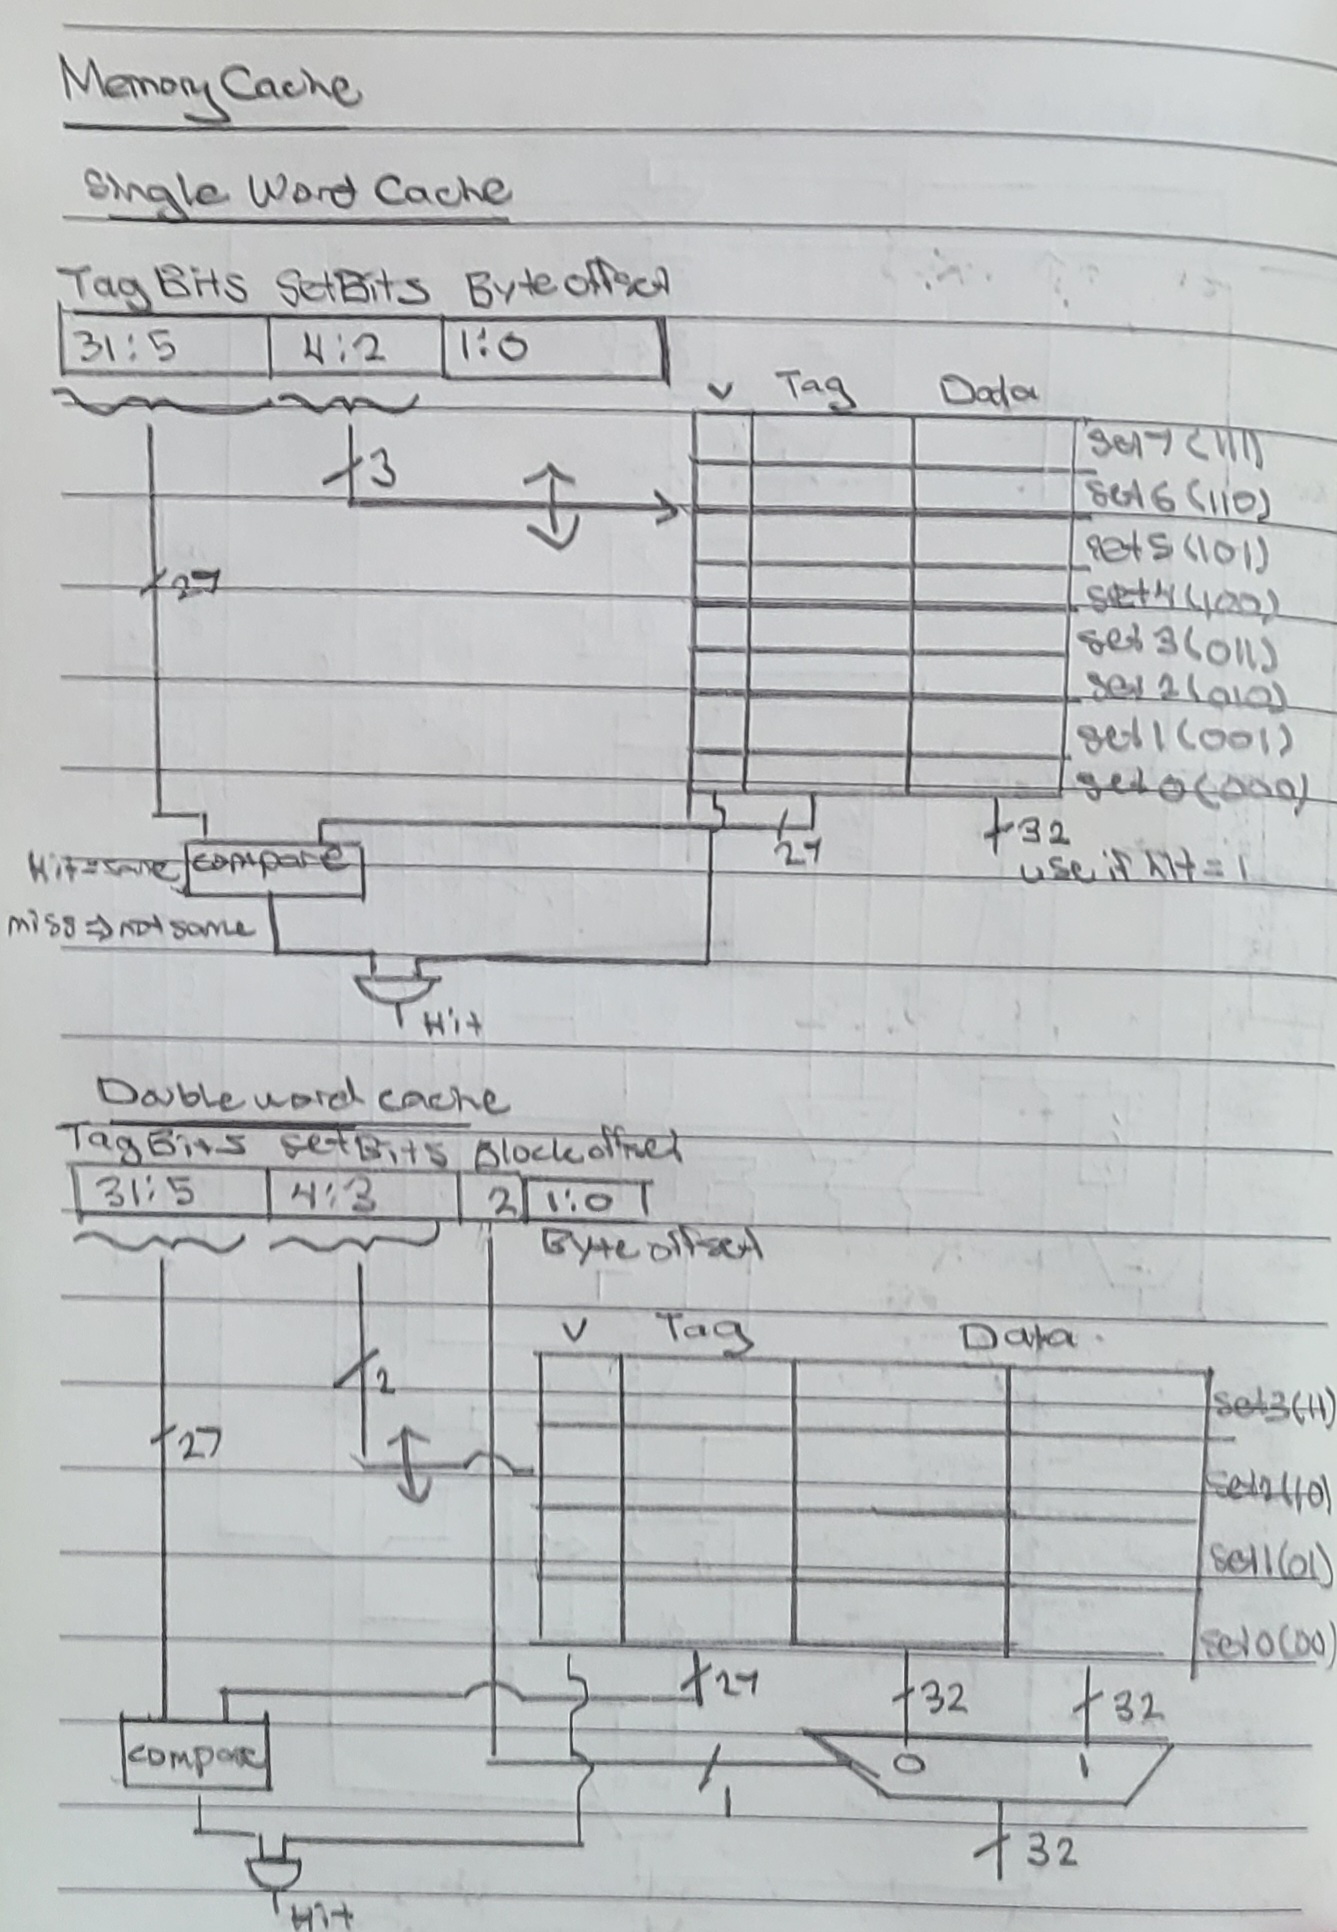 Memory Cache
Single Word Cache
Tag Bits Set Bits Byte offset
31:5 4:2 1:0
V Tag Data
set 7 (111)
3
set 6 (110)
set 5 (101)
27
set 4 (100)
set 3 (011)
set 2 (010)
set 1 (001)
set 0 (000)
27
32
use if hit = 1
Hit = same compare
miss => not same
Hit
Double word cache
Tag Bits Set Bits Block offset
31:5 4:3 2 1:0
Byte offset
V Tag Data
2
set 3 (11)
27
set 2 (10)
set 1 (01)
set 0 (00)
27 32 32
compare
0 1
1
32
Hit